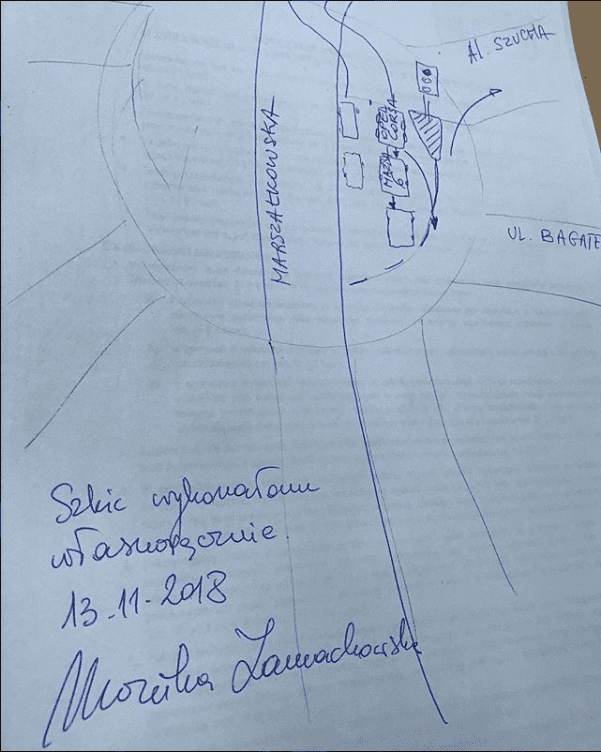 Al. SZUCHA
OPEL
CORSA
MAZDA
6
MARSZAŁKOWSKA
UL. BAGATE
Szkic wykonałam
własnoręcznie.
13-11-2018
Monika Zamachowska